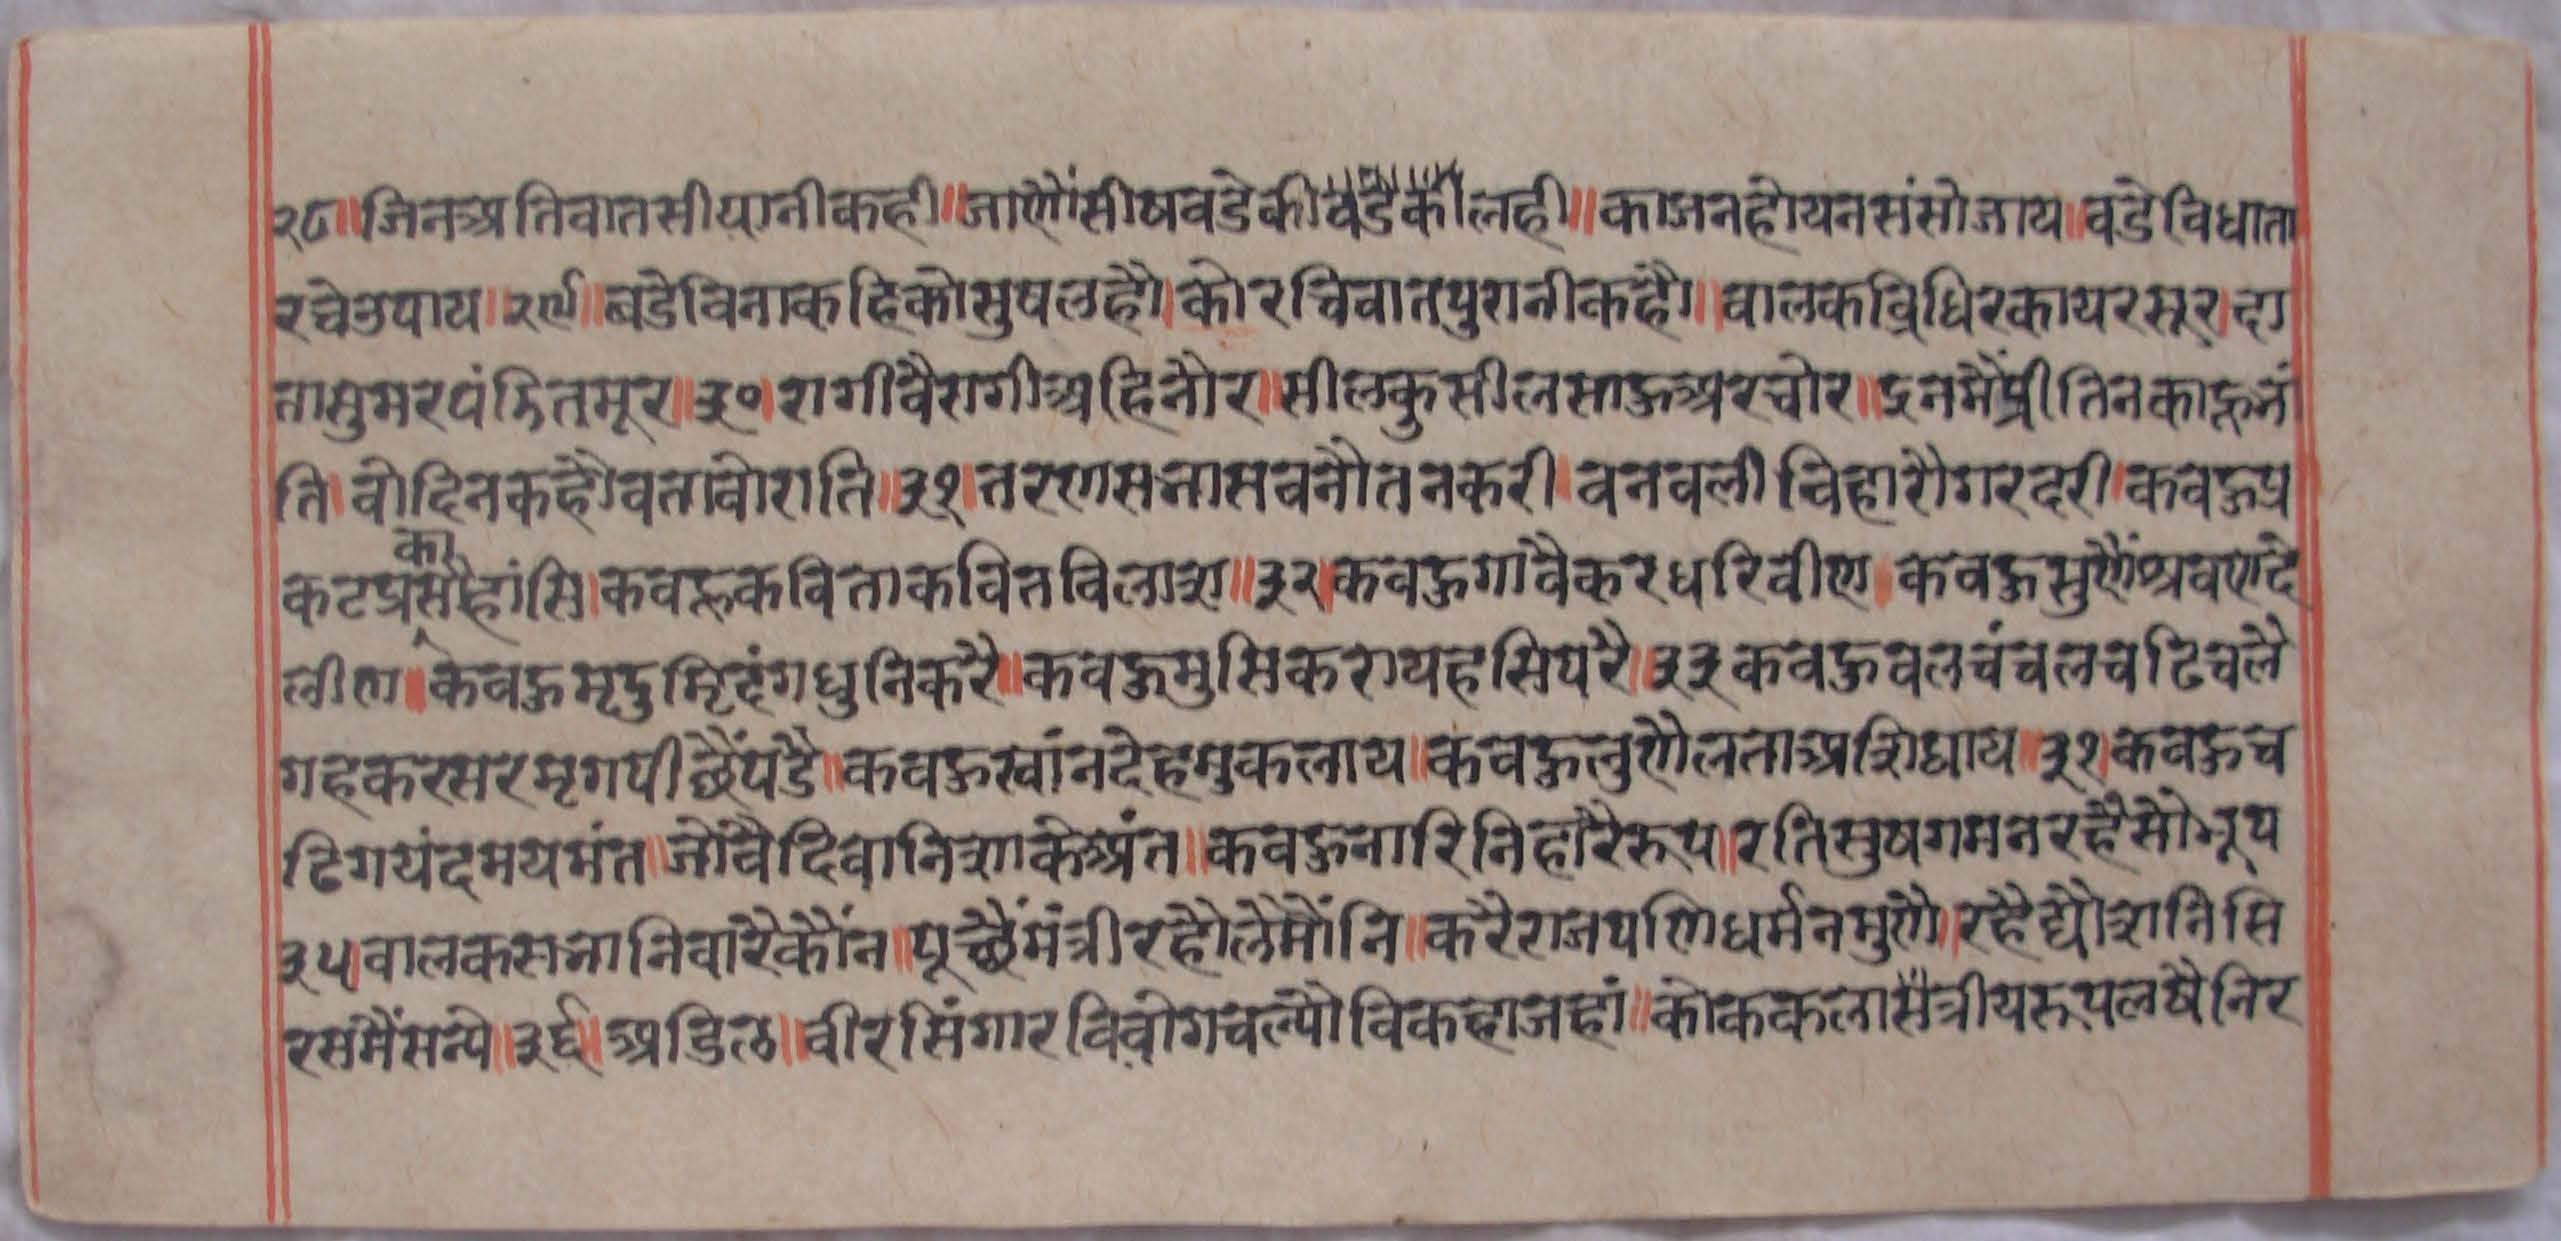 २८॥जिनप्रतिवातसीयानीकही॥जाणौंसीषवडेकीवडैकीलही॥काजनहोयनसंसोजाय॥वडेविधाता
रचेउपाय॥२९॥बडेविनाकहिकोसुषलहै।कोरचिवातपुरानीकहैं॥वालकब्रिधिरकायरसूर।दा
तासुमरपंडितमूर॥३०॥रागीवैरागीअहिनोर॥सीलकुसीलसाऊअरचोर॥इनमैंप्रीतिनकाहूभां
ति।वोदिनकहैवैवतावोराति॥३१।तरणसभासवनौतनकरी।वनवलीविहारौगरदरी।कवऊप्र
कटप्रकासैहांसि।कवहूकविताकवितविलाश॥३२।कवऊगावैकरधरिवीण।कवऊसुणैंश्रवणदे
लीण॥कवऊमृदुम्रिदंगधुनिकरै॥कवऊमुसिकरायहसिपरै॥३३कवऊवलचंचलचढिचलै
गहकरसरमृगपीछैंपडै॥कवऊस्वांनदेहमुकलाय॥कवऊलुणैलताअशिघाय॥३४।कवऊच
ढिगयंदमयमंत॥जोवैदिवानिशाकेअंत॥कवऊनारिनिहारैरूप॥रतिसुषगमनरहैसोभूप
३५।वालकसभानिवारैकौंन॥पूछैंमंत्रीरहौलैमौंनि॥करैराजपणिधर्मनमुणै॥रहैद्यौशनिसि
रसमैंसन्पे॥३६॥अडिल॥वीरसिंगारविवोगचल्यौविकहाजहां॥कोककलासैंत्रीयरूपलषैनिर